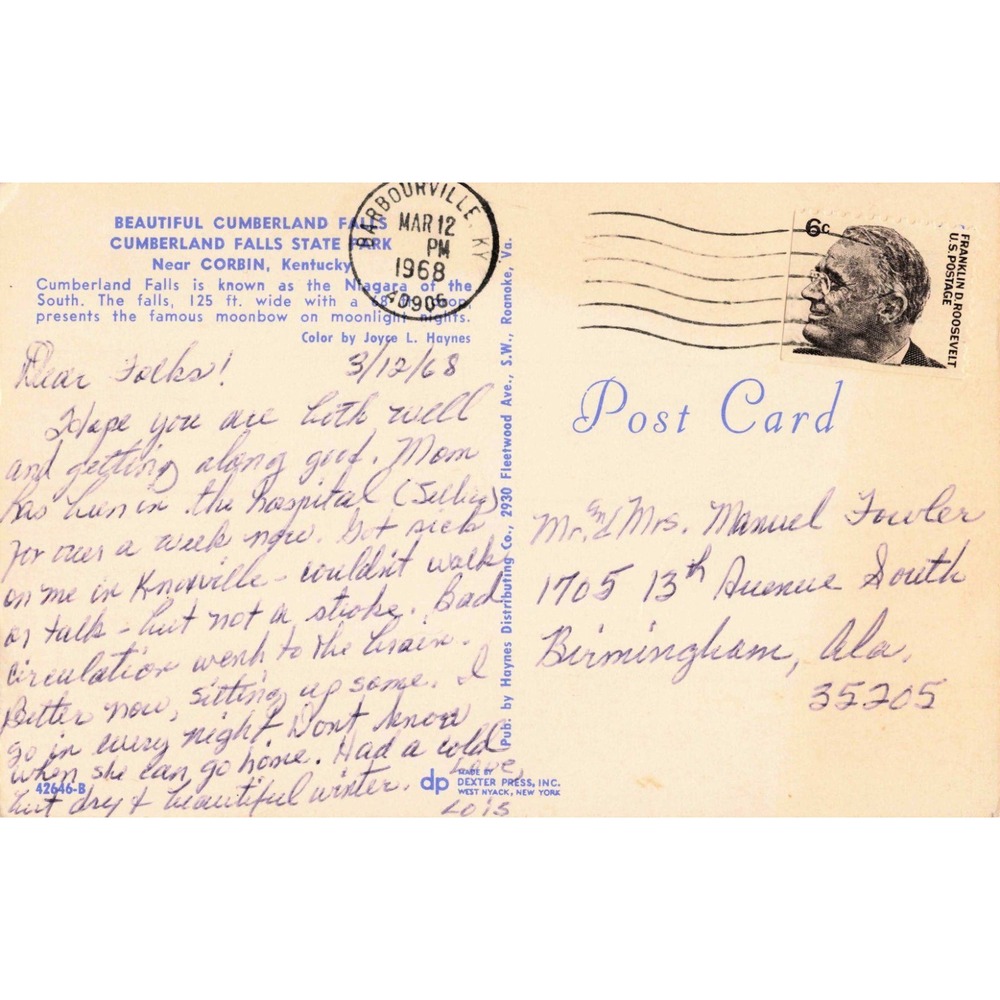 BEAUTIFUL CUMBERLAND FALLS
CUMBERLAND FALLS STATE PARK
Near CORBIN, Kentucky
Cumberland Falls is known as the Niagara of the
South. The falls, 125 ft. wide with a 68 ft. drop,
presents the famous moonbow on moonlight nights.
Color by Joyce L. Haynes
BARBOURVILLE, KY
MAR 12
PM
1968
40906
Dear Folks! 3/12/68
Hope you are both well
and getting along good. Mom
has been in the hospital
for over a week now. Got sick
on me in Knoxville - couldn't walk
or talk - but not a stroke. Bad
circulation went to the brain.
Better now, sitting up some. I
go in every night Don't know
when she can go home. Had a cold
but dry & beautiful winter. Love,
Lois
42646-B
dp MADE BY
DEXTER PRESS, INC.
WEST NYACK, NEW YORK
Pub. by Haynes Distributing Co., 2930 Fleetwood Ave., S.W., Roanoke, Va.
6c
FRANKLIN D. ROOSEVELT
U.S. POSTAGE
Post Card
Mr. and Mrs. Manuel Fowler
1705 13th Avenue South
Birmingham, Ala.
35205